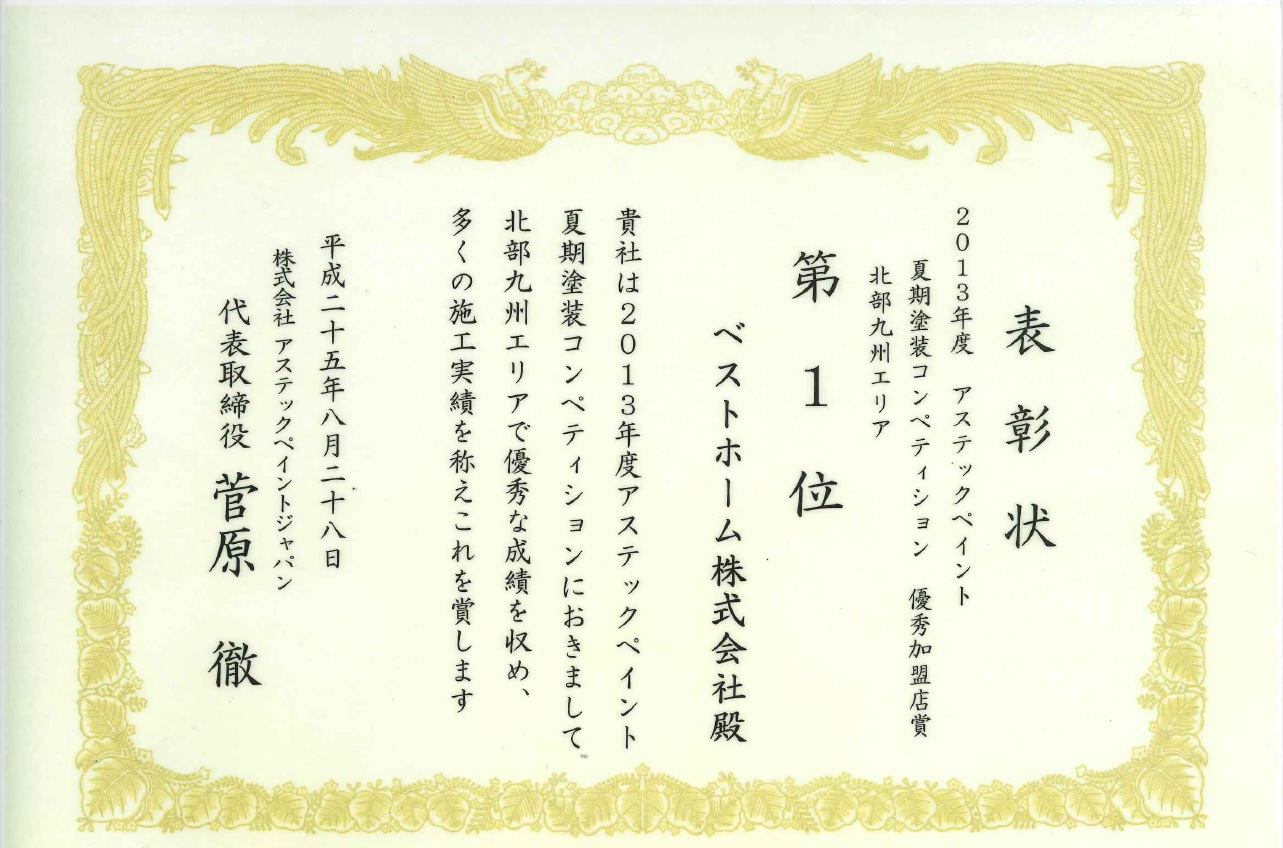 表彰状
2013年度 アステックペイント
夏期塗装コンペティション 優秀加盟店賞
北部九州エリア
第1位
ベストホーム株式会社殿
貴社は2013年度アステックペイント
夏期塗装コンペティションにおきまして
北部九州エリアで優秀な成績を収め、
多くの施工実績を称えこれを賞します
平成二十五年八月二十八日
株式会社 アステックペイントジャパン
代表取締役 菅原 徹